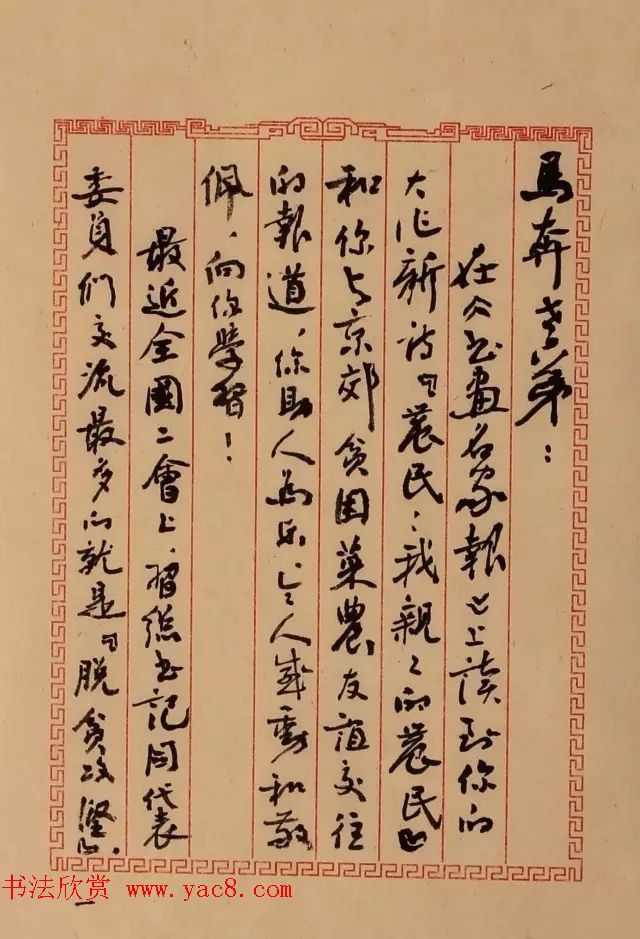 馬奔老弟：
在《書畫名家報》上讀到你的
大作新詩『農民：我親々的農民』
和你与京郊貧困菜農友誼交往
的報道，你助人為乐，令人感動和敬
佩，向你學習！
最近全國二會上，習総书記同代表
委員們交流最多的就是『脱贫攻堅』。
一
书法欣赏 www.yac8.com